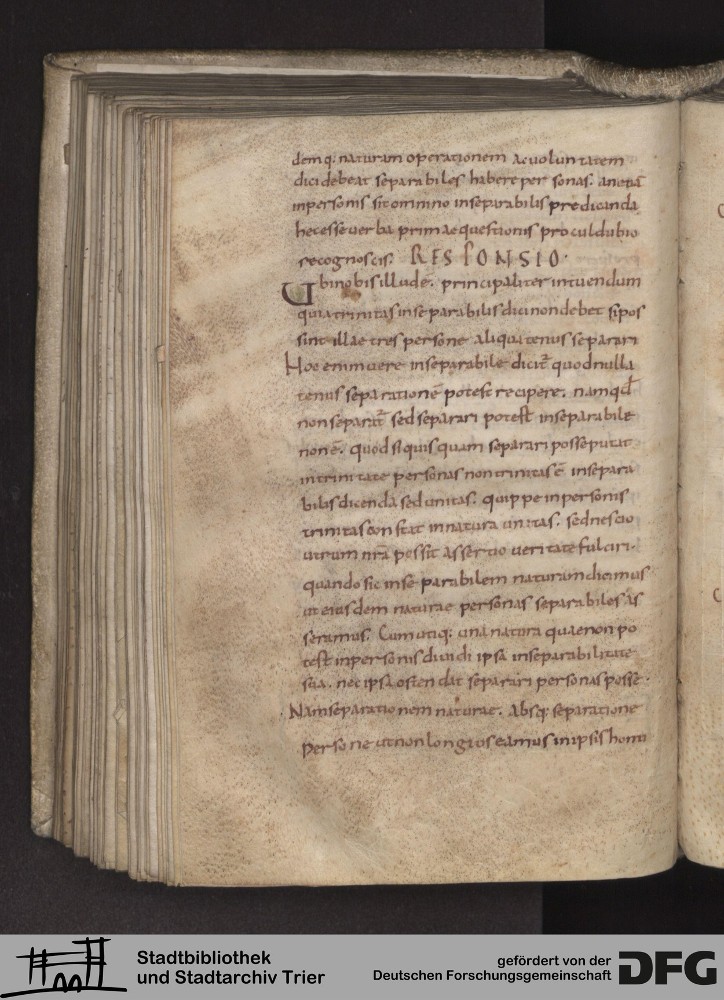 demq: naturam operationem ac voluntatem
dici debeat separabiles habere personas. an eᷓtā
in personis sit omnino inseparabilis predicanda
hec esse verba primae questionis procul dubio
recognoscis. RESPONSIO.
Ubi nobis illud ē. principaliter intuendum
quia trinitas inseparabilis dici non debet si pos
sint illae tres persone aliquatenus separari
Hoc enim vere inseparabile dicit̄ quod nulla
tenus separationē potest recipere. nam qd̄
non separat̄ sed separari potest inseparabile
non ē. quod si quisquam separari posse putat
in trinitate personas non trinitas ē insepara
bilis dicenda sed unitas. quippe in personis
trinitas constat in natura unitas. sed nescio
utrum nrā possit assertio veritate fulciri.
quando sic inseparabilem naturam dicimus
ut eiusdem naturae personas separabiles as
seramus. Cum utiq: una natura quae non po
test in personis dividi ipsa inseparabilitate
sua. nec ipsa ostendat separari personas posse.
Nam separationem naturae. absq: separatione
persone ut non longius eamus in ipsis homi
Stadtbibliothek
und Stadtarchiv Trier
gefördert von der
Deutschen Forschungsgemeinschaft
DFG